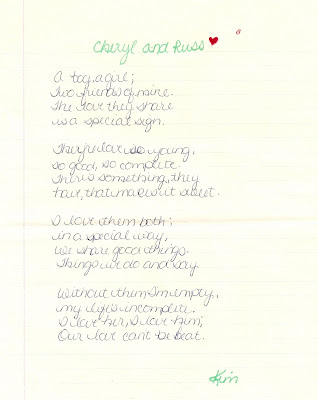 Cheryl and Russ ♥
A boy, a girl;
Two friends of mine.
The love they share
is a special sign.
Their love so young,
so good, so complete.
There is something, they
have, that makes it sweet.
I love them both;
in a special way,
We share good things.
Things we do and say.
Without them I'm empty,
my life is incomplete.
I love her, I love him;
Our love can't be beat.
Kim